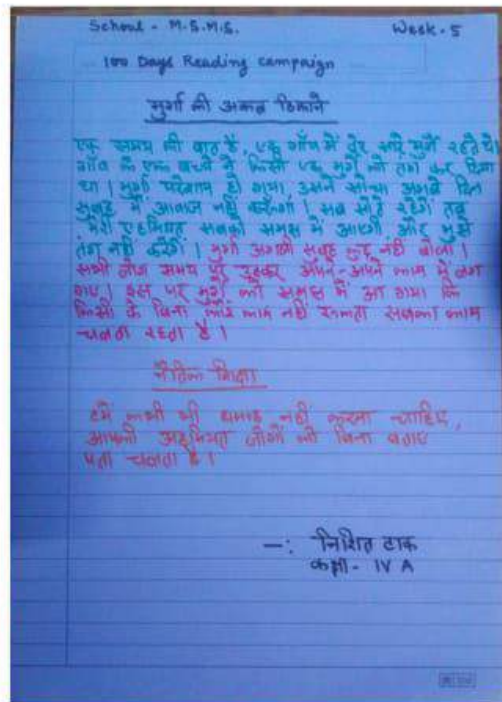 School - M.S.M.S. Week - 5
100 Days Reading campaign
मुर्गा की अकल ठिकाने
एक समय की बात है, एक गाँव में ढेर सारे मुर्गे रहते थे।
गाँव के एक बच्चे ने किसी एक मुर्गे को तंग कर दिया
था। मुर्गा परेशान हो गया, उसने सोचा अगले दिन
सुबह मैं आवाज नहीं करूँगा। सब सोते रहेंगे तब
मेरी एहमियत सबको समझ में आएगी, और मुझे
तंग नहीं करेंगे। मुर्गा अगली सुबह कुछ नहीं बोला।
सभी लोग समय पर उठकर अपने-अपने काम में लग
गए। इस पर मुर्गे को समझ में आ गया कि
किसी के बिना कोई काम नहीं रुकता सबका काम
चलता रहता है।
नैतिक शिक्षा
हमें कभी भी घमंड नहीं करना चाहिए,
आपकी अहमियत लोगों को बिना बताए
पता चलता है।
—: निशित टाक
कक्षा - IV A